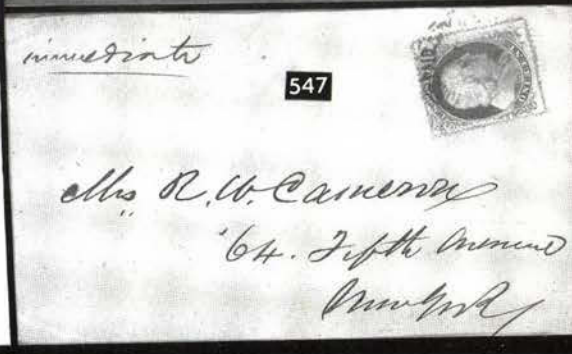 immediate
547
Mrs R. W. Cameron
64. Fifth Avenue
New York